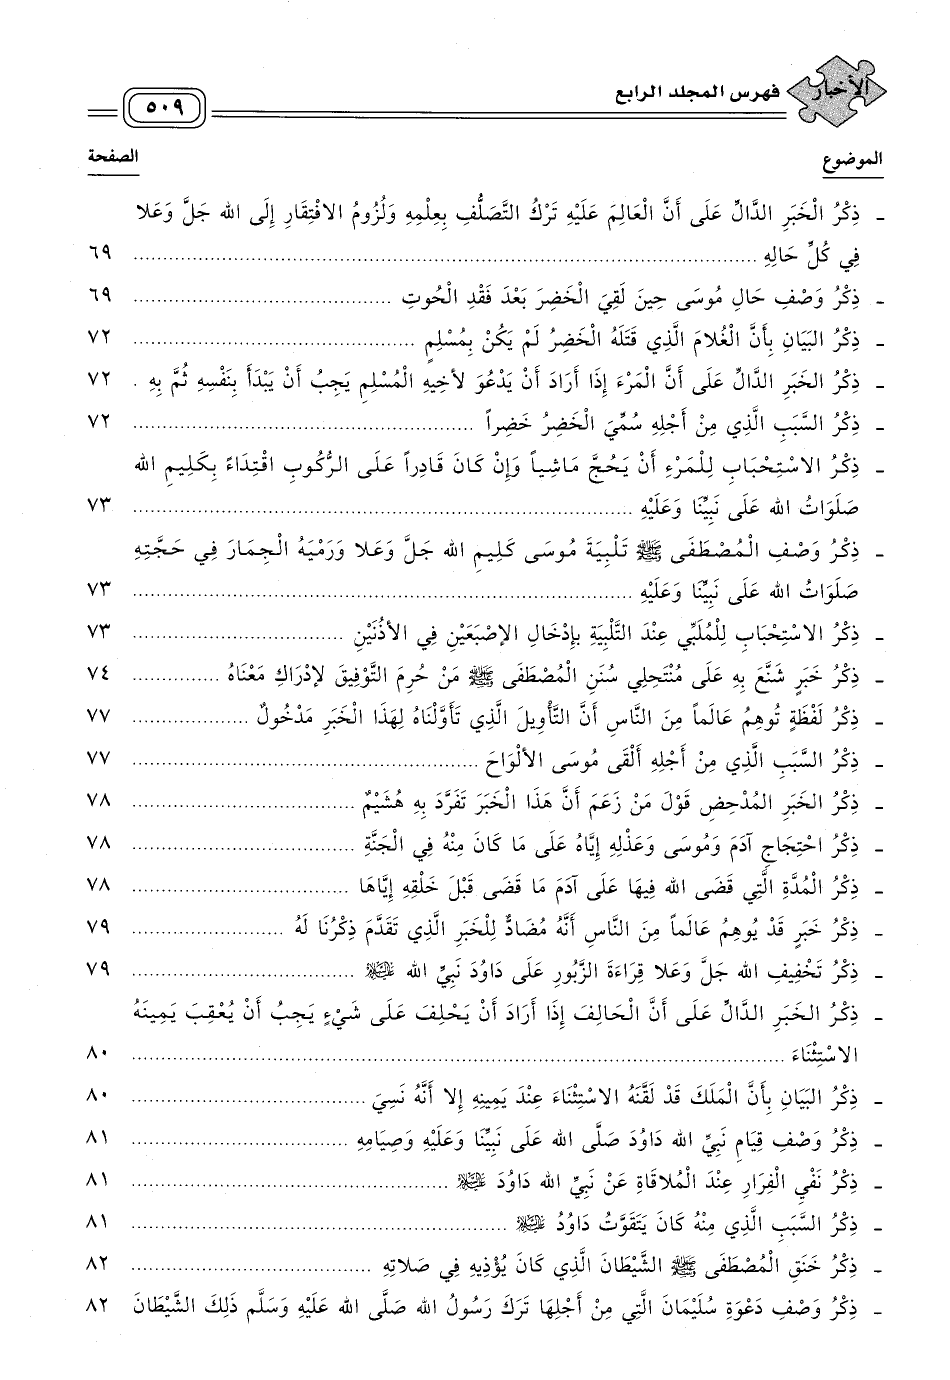 الأخبار
فهرس المجلد الرابع
٥٠٩
الموضوع
الصفحة
- ذِكْرُ الْخَبَرِ الدَّالِّ عَلَى أَنَّ الْعَالِمَ عَلَيْهِ تَرْكُ التَّصَلُّفِ بِعِلْمِهِ وَلُزُومُ الافْتِقَارِ إِلَى الله جَلَّ وَعَلا
فِي كُلِّ حَالِهِ ........ ٦٩
- ذِكْرُ وَصْفِ حَالِ مُوسَى حِينَ لَقِيَ الْخَضِرَ بَعْدَ فَقْدِ الْحُوتِ ........ ٦٩
- ذِكْرُ البَيَانِ بِأَنَّ الْغُلامَ الَّذِي قَتَلَهُ الْخَضِرُ لَمْ يَكُنْ بِمُسْلِمٍ ........ ٧٢
- ذِكْرُ الخَبَرِ الدَّالِّ عَلَى أَنَّ الْمَرْءَ إِذَا أَرَادَ أَنْ يَدْعُوَ لأخِيهِ الْمُسْلِمِ يَجِبُ أَنْ يَبْدَأَ بِنَفْسِهِ ثُمَّ بِهِ . ٧٢
- ذِكْرُ السَّبَبِ الَّذِي مِنْ أَجْلِهِ سُمِّيَ الْخَضِرُ خَضِراً ........ ٧٢
- ذِكْرُ الاسْتِحْبَابِ لِلْمَرْءِ أَنْ يَحُجَّ مَاشِياً وَإِنْ كَانَ قَادِراً عَلَى الرُّكُوبِ اقْتِدَاءً بِكَلِيمِ الله
صَلَوَاتُ الله عَلَى نَبِيِّنَا وَعَلَيْهِ ........ ٧٣
- ذِكْرُ وَصْفِ الْمُصْطَفَى ﷺ تَلْبِيَةَ مُوسَى كَلِيمِ الله جَلَّ وَعَلا وَرَمْيَهُ الْجِمَارَ فِي حَجَّتِهِ
صَلَوَاتُ الله عَلَى نَبِيِّنَا وَعَلَيْهِ ........ ٧٣
- ذِكْرُ الاسْتِحْبَابِ لِلْمُلَبِّي عِنْدَ التَّلْبِيَةِ بِإِدْخَالِ الإصْبَعَيْنِ فِي الأذُنَيْنِ ........ ٧٣
- ذِكْرُ خَبَرٍ شَنَّعَ بِهِ عَلَى مُنْتَحِلِي سُنَنِ الْمُصْطَفَى ﷺ مَنْ حُرِمَ التَّوْفِيقَ لإدْرَاكِ مَعْنَاهُ ........ ٧٤
- ذِكْرُ لَفْظَةٍ تُوهِمُ عَالَماً مِنَ النَّاسِ أَنَّ التَّأْوِيلَ الَّذِي تَأَوَّلْنَاهُ لِهَذَا الْخَبَرِ مَدْخُولٌ ........ ٧٧
- ذِكْرُ السَّبَبِ الَّذِي مِنْ أَجْلِهِ أَلْقَى مُوسَى الألْوَاحَ ........ ٧٧
- ذِكْرُ الخَبَرِ المُدْحِضِ قَوْلَ مَنْ زَعَمَ أَنَّ هَذَا الْخَبَرَ تَفَرَّدَ بِهِ هُشَيْمٌ ........ ٧٨
- ذِكْرُ احْتِجَاجِ آدَمَ وَمُوسَى وَعَذْلِهِ إِيَّاهُ عَلَى مَا كَانَ مِنْهُ فِي الْجَنَّةِ ........ ٧٨
- ذِكْرُ الْمُدَّةِ الَّتِي قَضَى الله فِيهَا عَلَى آدَمَ مَا قَضَى قَبْلَ خَلْقِهِ إِيَّاهَا ........ ٧٨
- ذِكْرُ خَبَرٍ قَدْ يُوهِمُ عَالَماً مِنَ النَّاسِ أَنَّهُ مُضَادٌّ لِلْخَبَرِ الَّذِي تَقَدَّمَ ذِكْرُنَا لَهُ ........ ٧٩
- ذِكْرُ تَخْفِيفِ الله جَلَّ وَعَلا قِرَاءَةَ الزَّبُورِ عَلَى دَاوُدَ نَبِيِّ الله ﵇ ........ ٧٩
- ذِكْرُ الخَبَرِ الدَّالِّ عَلَى أَنَّ الْحَالِفَ إِذَا أَرَادَ أَنْ يَحْلِفَ عَلَى شَيْءٍ يَجِبُ أَنْ يُعْقِبَ يَمِينَهُ
الاسْتِثْنَاءَ ........ ٨٠
- ذِكْرُ البَيَانِ بِأَنَّ الْمَلَكَ قَدْ لَقَّنَهُ الاسْتِثْنَاءَ عِنْدَ يَمِينِهِ إِلا أَنَّهُ نَسِيَ ........ ٨٠
- ذِكْرُ وَصْفِ قِيَامِ نَبِيِّ الله دَاوُدَ صَلَّى الله عَلَى نَبِيِّنَا وَعَلَيْهِ وَصِيَامِهِ ........ ٨١
- ذِكْرُ نَفْيِ الْفِرَارِ عِنْدَ الْمُلاقَاةِ عَنْ نَبِيِّ الله دَاوُدَ ﵇ ........ ٨١
- ذِكْرُ السَّبَبِ الَّذِي مِنْهُ كَانَ يَتَقَوَّتُ دَاوُدُ ﵇ ........ ٨١
- ذِكْرُ خَنَقِ الْمُصْطَفَى ﷺ الشَّيْطَانَ الَّذِي كَانَ يُؤْذِيهِ فِي صَلاتِهِ ........ ٨٢
- ذِكْرُ وَصْفِ دَعْوَةِ سُلَيْمَانَ الَّتِي مِنْ أَجْلِهَا تَرَكَ رَسُولُ الله صَلَّى الله عَلَيْهِ وَسَلَّم ذَلِكَ الشَّيْطَانَ ٨٢